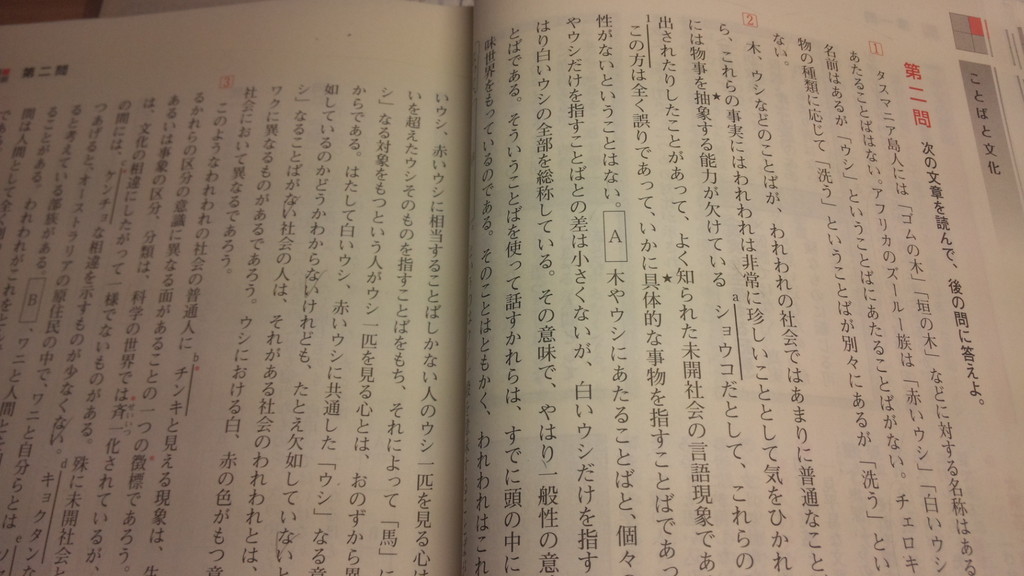 ことばと文化
第二問 次の文章を読んで、後の問に答えよ。
1 タスマニア島人には「ゴムの木」「垣の木」などに対する名称はある
あたることばはない。アフリカのズールー族は「赤いウシ」「白いウシ
名前はあるが「ウシ」ということばにあたることばがない。チェロキ
物の種類に応じて「洗う」ということばが別々にあるが「洗う」とい
ない。
2 木、ウシなどのことばが、われわれの社会ではあまりに普通なこと
ら、これらの事実にはわれわれは非常に珍しいこととして気をひかれ
には物事を抽象する能力が欠けている a ショウコだとして、これらの
出されたりしたことがあって、よく知られた未開社会の言語現象であ
1 この方は全く誤りであって、いかに具体的な事物を指すことばであっ
性がないということはない。 A 木やウシにあたることばと、個々
やウシだけを指すことばとの差は小さくないが、白いウシだけを指す
はり白いウシの全部を総称している。その意味で、やはり一般性の意
とばである。そういうことばを使って話すかれらは、すでに頭の中に
味世界をもっているのである。そのことはともかく、われわれはこれ
第二問
いウシ、赤いウシに相当することばしかない人のウシ一匹を見る心は
いを超えたウシそのものを指すことばをもち、それによって「馬」に
シ」なる対象をもつという人がウシ一匹を見る心とは、おのずから異
からである。はたして白いウシ、赤いウシに共通した「ウシ」なる意
如しているのかどうかわからないけれども、たとえ欠如していないと
シ」なることばがない社会の人は、それがある社会のわれわれとは、
ワクに異なるものがあるであろう。ウシにおける白、赤の色がもつ意
社会において異なるであろう。
3 このようなわれわれの社会の普通人に b チンキと見える現象は、生
るかれらの区分の意識に異なる面があることの一つの徴標であろう。
あるいは事象の区分、分類は、科学の世界では斉一化されているが、
は、文化の相違にしたがって一様でないものがある。殊に未開社会と
の間には、 c ケンチョな相違を示すものが少なくない。 d キョクタンな
つあげると、オーストラリアの原住民の中で、ワニと自分らとは e ソ
ると考えている部族がある。 B 、ワニと人間とと
ることがある。われわれがこれを
間は人間として全く別